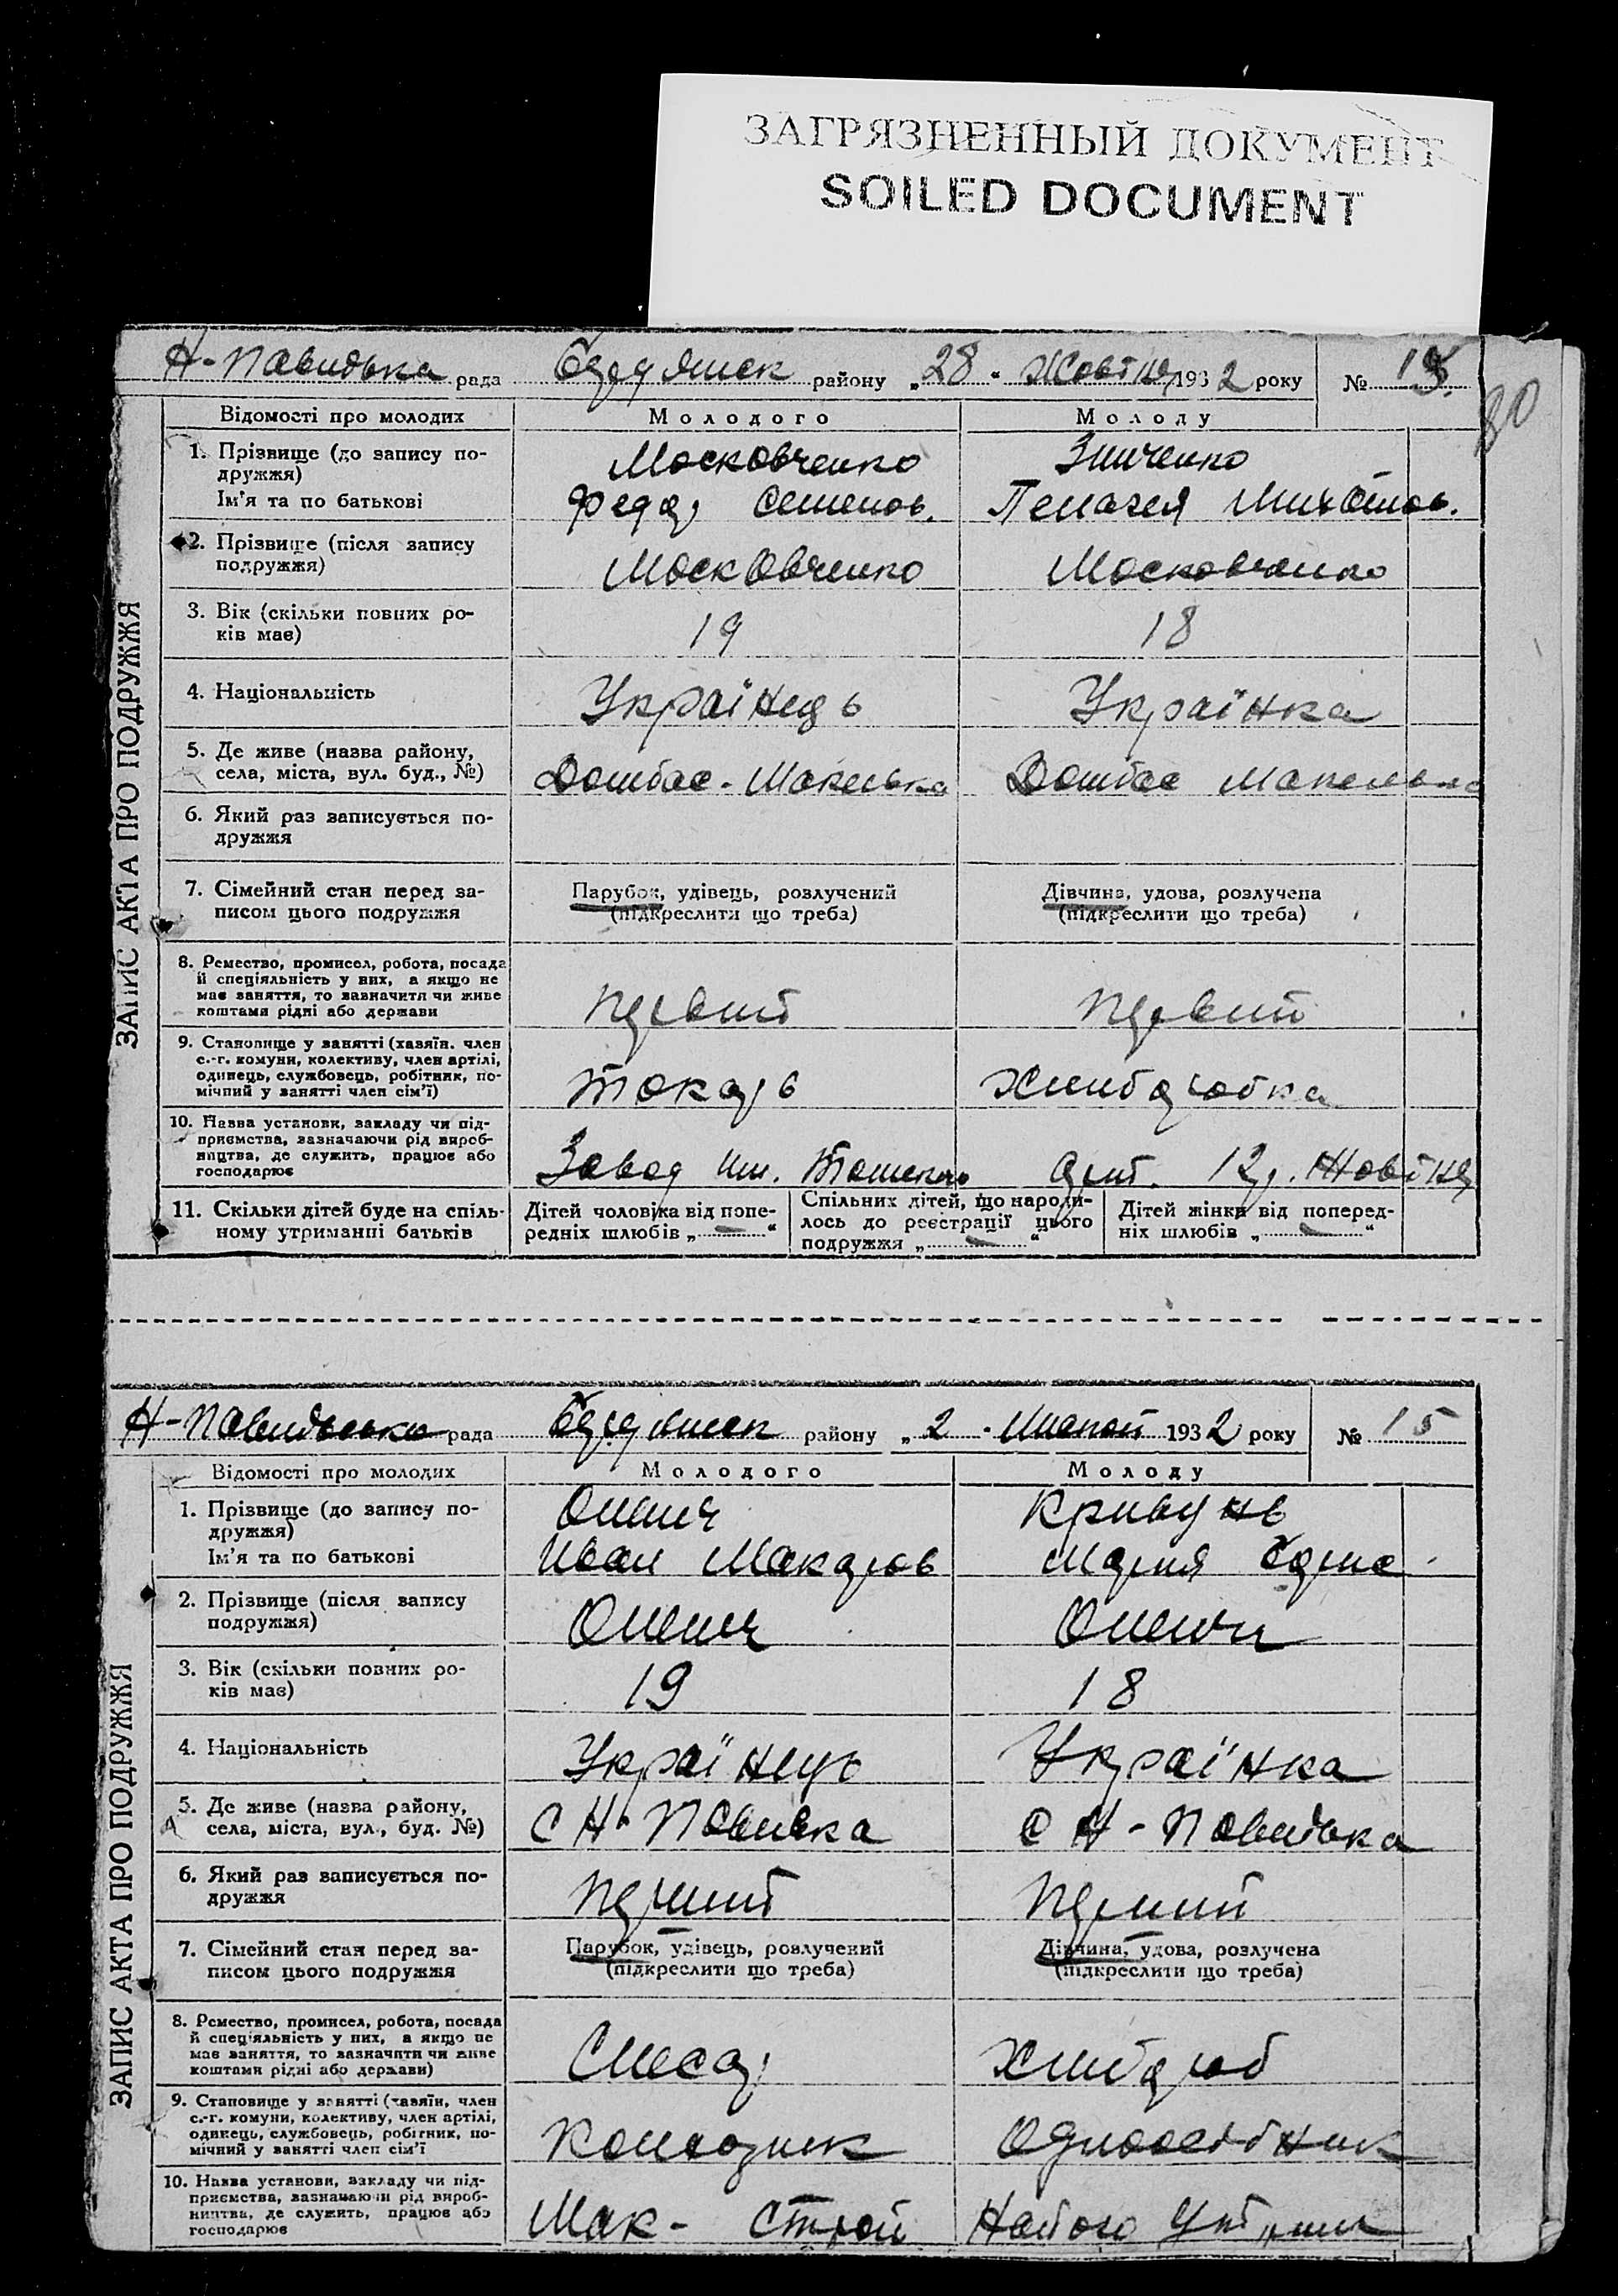 ЗАГРЯЗНЕННЫЙ ДОКУМЕНТ
SOILED DOCUMENT
рада району „28“ Жовтня 1932 року №
80
ЗАПИС АКТА ПРО ПОДРУЖЖЯ
Відомості про молодих Молодого Молоду
1. Прізвище (до запису по- Московченко Зинченко
дружжя)
Ім'я та по батькові Федор Семенов. Пелагея
2. Прізвище (після запису
подружжя) Московченко Московченко
3. Вік (скільки повних ро- 19 18
ків має)
4. Національність Українець Українка
5. Де живе (назва району,
села, міста, вул. буд., №) Домбас - Донбас
6. Який раз записується по-
дружжя
7. Сімейний стан перед за- Парубок, удівець, розлучений Дівчина, удова, розлучена
писом цього подружжя (підкреслити що треба) (підкреслити що треба)
8. Ремество, промисел, робота, посада
й спеціяльність у них, а якщо не
має заняття, то зазначити чи живе
коштами рідні або держави первий первий
9. Становище у занятті (хазяїн. член
с.-г. комуни, колективу, член артілі,
одинець, службовець, робітник, по-
мічний у занятті член сім'ї) токарь
10. Назва установи, закладу чи під-
приємства, зазначаючи рід вироб-
ництва, де служить, працює або Завод им. Томского арт. 12 р. Жовтня
господарює
11. Скільки дітей буде на спіль- Дітей чоловіка від попе- Спільних дітей, що народи- Дітей жінки від поперед-
ному утриманні батьків редніх шлюбів „ — “ лось до реєстрації цього ніх шлюбів „ — “
подружжя „ — “
рада району „2 1932 року № 15
ЗАПИС АКТА ПРО ПОДРУЖЖЯ
Відомості про молодих Молодого Молоду
1. Прізвище (до запису по- Кривунь
дружжя)
Ім'я та по батькові Иван Макаров Мария
2. Прізвище (після запису
подружжя)
3. Вік (скільки повних ро- 19 18
ків має)
4. Національність Українець Українка
5. Де живе (назва району,
села, міста, вул., буд. №) с Н- с Н-
6. Який раз записується по-
дружжя перший перший
7. Сімейний стан перед за- Парубок, удівець, розлучений Дівчина, удова, розлучена
писом цього подружжя (підкреслити що треба) (підкреслити що треба)
8. Ремество, промисел, робота, посада
й спеціяльність у них, а якщо не
має заняття, то зазначити чи живе Слесар Хлибороб
коштами рідні або держави)
9. Становище у занятті (хазяїн, член
с.-г. комуни, колективу, член артілі,
одинець, службовець, робітник, по-
мічний у занятті член сім'ї
10. Назва установи, закладу чи під-
приємства, зазначаючи рід вироб-
ництва, де служить, працює або Мак- Строй
господарює